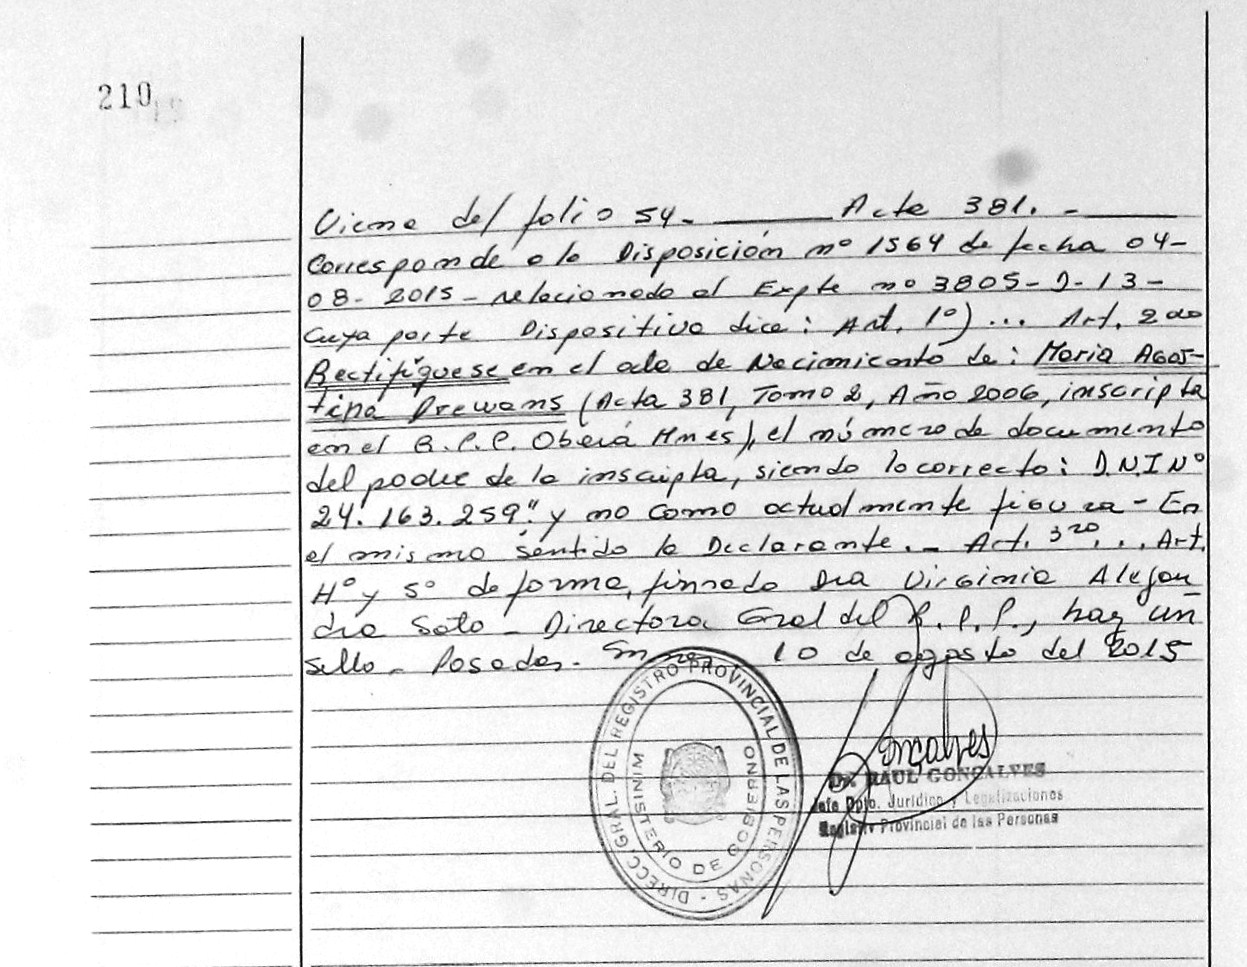 210
Viene del folio 54.- Acta 381.-
Corresponde a la Disposición nº 1564 de fecha 04-
08-2015- relacionado al Expte nº 3805-D-13-
Cuya parte Dispositiva dice: Art. 1º)... Art. 2do
Rectifíquese en el acta de Nacimiento de: Maria Agos-
tina Drewans (Acta 381, Tomo 2, Año 2006, inscripta
en el R.P.P. Oberá Mnes), el número de documento
del padre de la inscripta, siendo lo correcto: D.N.I Nº
24.163.259." y no como actualmente figura - En
el mismo sentido la Declarante.- Art. 3ro... Art.
4º y 5º de forma, firmado Dra Virginia Alejan
dra Soto - Directora Gral del R.P.P., hay un
sello - Posadas. 10 de agosto del 2015
DIRECC GRAL. DEL REGISTRO PROVINCIAL DE LAS PERSONAS -
MINISTERIO DE GOBIERNO
Goncalves
Dr. RAUL GONCALVES
Jefe Dpto. Jurídico y Legalizaciones
Registro Provincial de las Personas